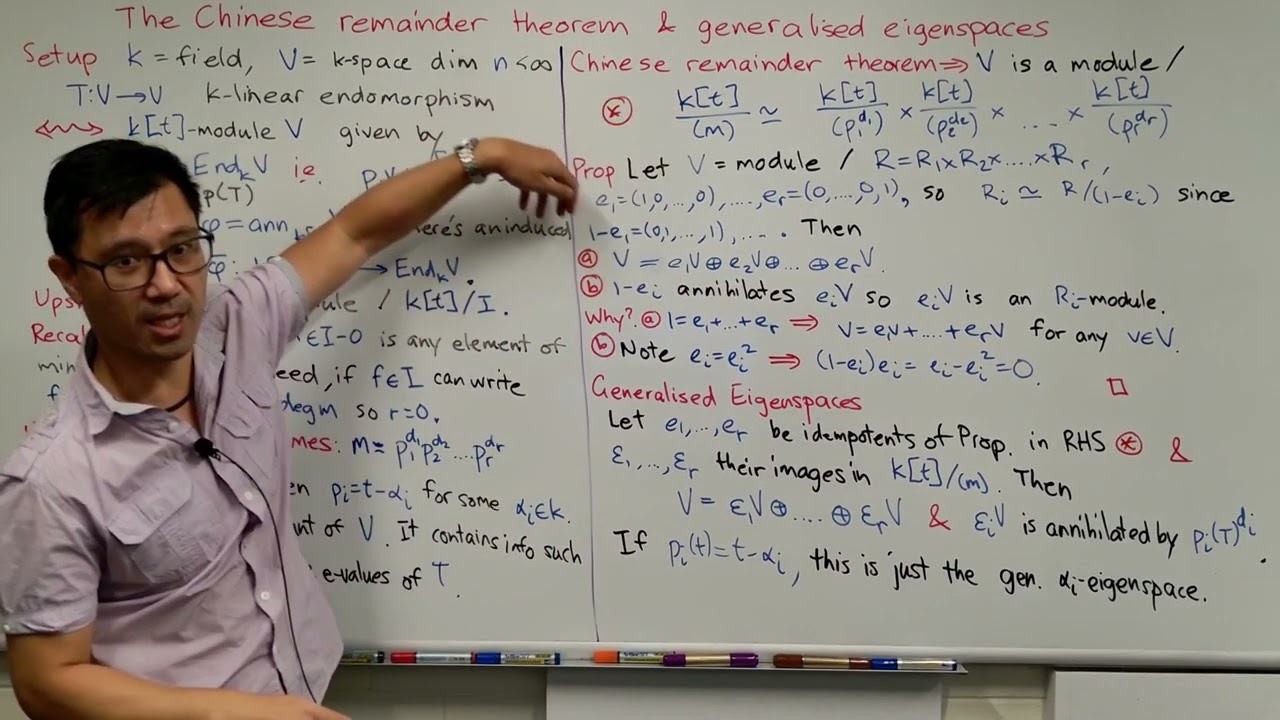 The Chinese remainder theorem & generalised eigenspaces
Setup k = field, V = k-space dim n < ∞
T: V → V k-linear endomorphism
⟷ k[t]-module V given by
End_k V ie
p(T)
φ = ann
here's an induced
φ̄ : → End_k V.
module / k[t]/I.
∈ I-0 is any element of
min
eed, if f ∈ I can write
deg m so r=0.
mes: m = p₁^{d₁} p₂^{d₂} ... p_r^{d_r}
en p_i = t-α_i for some α_i ∈ k.
of V. It contains info such
e-values of T.
Chinese remainder theorem ⇒ V is a module /
(*) k[t]/(m) ≃ k[t]/(p₁^{d₁}) × k[t]/(p₂^{d₂}) × .... × k[t]/(p_r^{d_r})
Prop Let V = module / R = R₁×R₂×....×R_r,
e₁=(1,0,...,0),....,e_r=(0,...,0,1), so R_i ≃ R/(1-e_i) since
1-e₁=(0,1,...,1),.... Then
(a) V = e₁V⊕e₂V⊕...⊕e_rV.
(b) 1-e_i annihilates e_iV so e_iV is an R_i-module.
Why? (a) 1=e₁+...+e_r ⇒ v=e₁v+....+e_rv for any v∈V.
(b) Note e_i=e_i² ⇒ (1-e_i)e_i = e_i-e_i²=0. □
Generalised Eigenspaces
Let e₁,...,e_r be idempotents of Prop. in RHS (*) &
ε₁,...,ε_r their images in k[t]/(m). Then
V = ε₁V ⊕ .... ⊕ ε_rV & ε_iV is annihilated by p_i(T)^{d_i}.
If p_i(t)=t-α_i, this is just the gen. α_i-eigenspace.